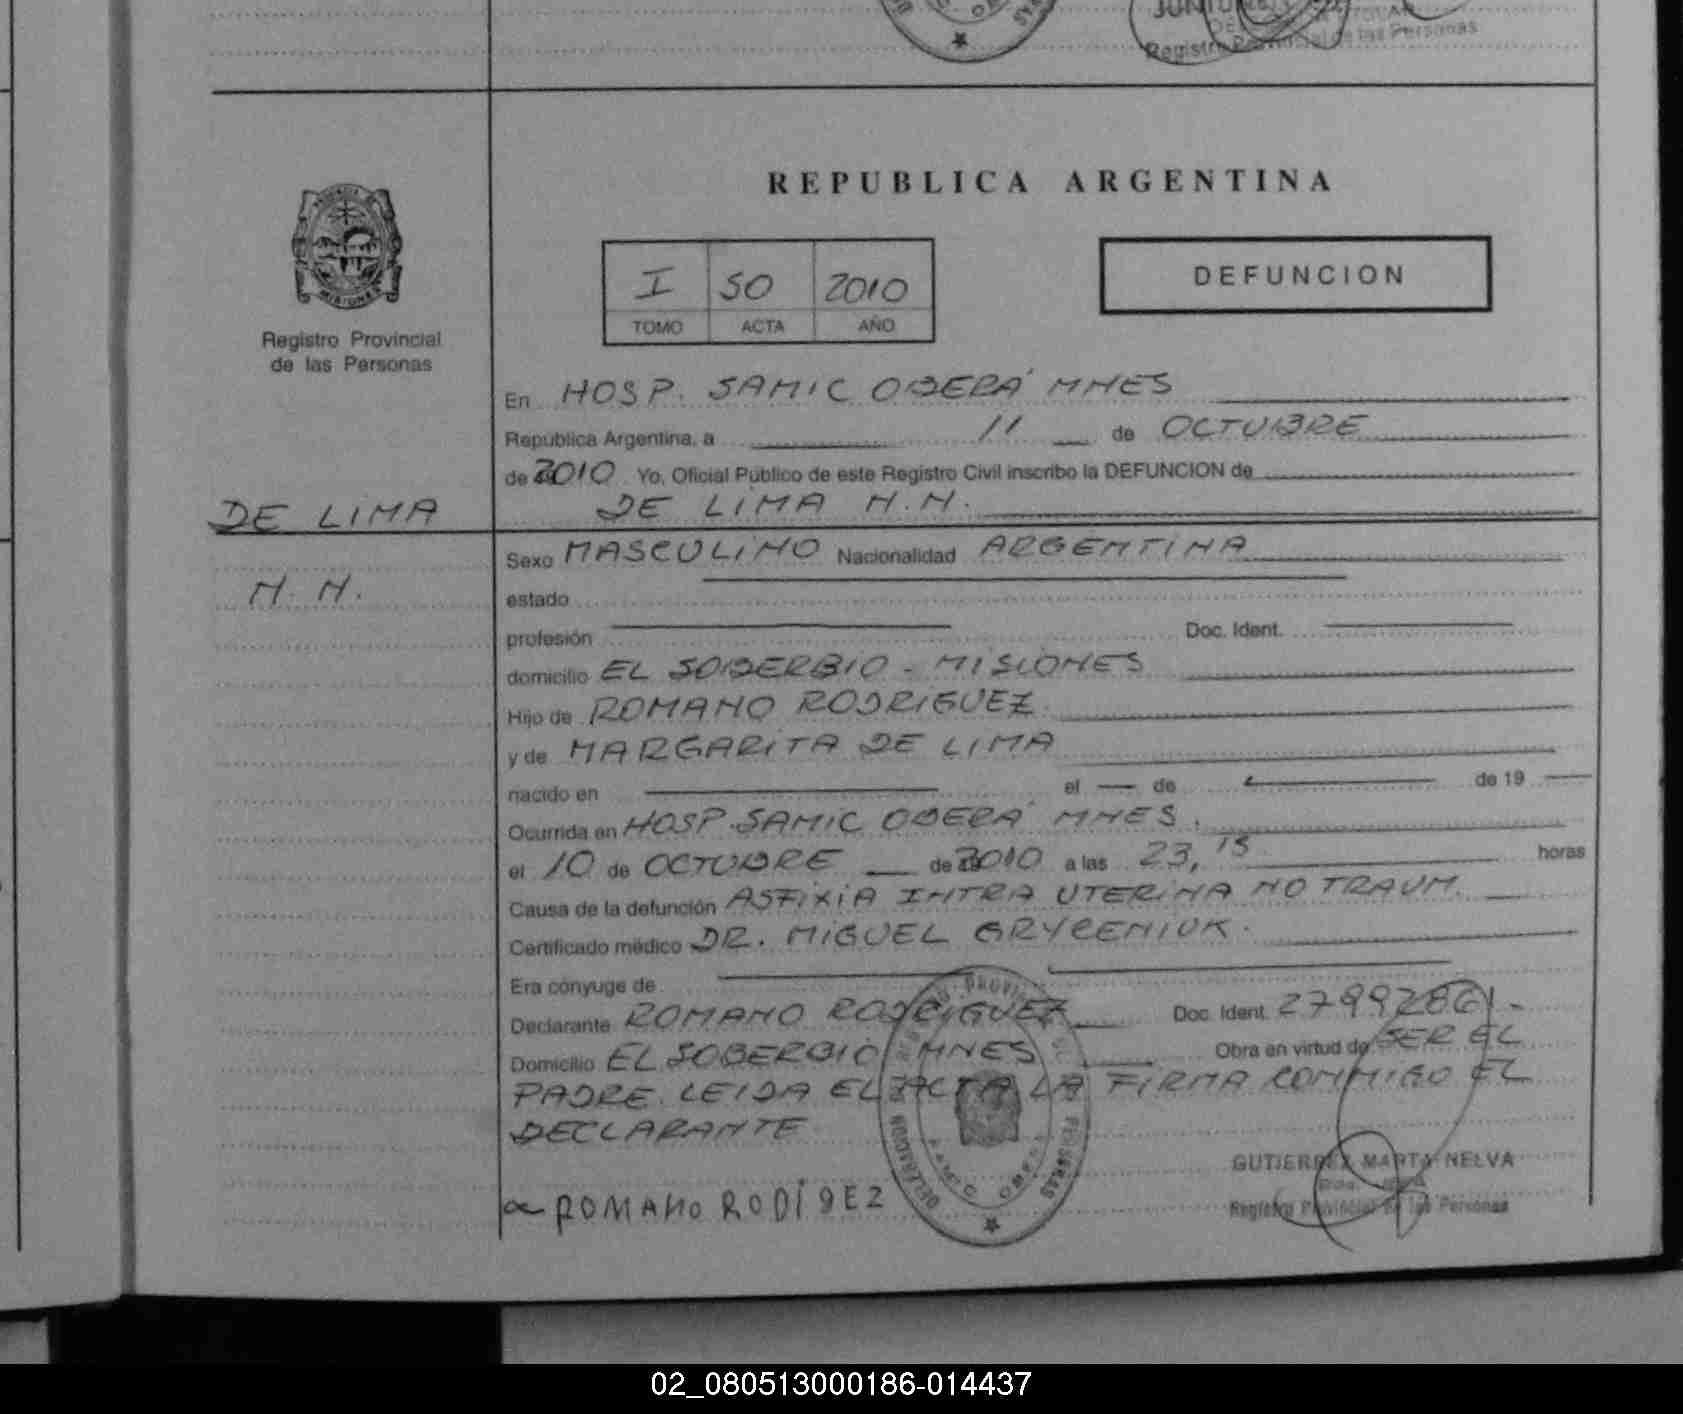 JUNIO
Registro Provincial de las Personas
REPUBLICA ARGENTINA
MISIONES
I 50 2010
TOMO ACTA AÑO
DEFUNCION
Registro Provincial
de las Personas
En HOSP. SAMIC OBERÁ MNES
República Argentina, a 11 de OCTUBRE
de 2010 Yo, Oficial Público de este Registro Civil inscribo la DEFUNCION de
DE LIMA N.N.
DE LIMA
N.N.
Sexo MASCULINO Nacionalidad ARGENTINA
estado
profesión Doc. Ident.
domicilio EL SOBERBIO - MISIONES
Hijo de ROMANO RODRIGUEZ
y de MARGARITA DE LIMA
nacido en el de de 19
Ocurrida en HOSP. SAMIC OBERÁ MNES.
el 10 de OCTUBRE de 2010 a las 23,15 horas
Causa de la defunción ASFIXIA INTRA UTERINA NO TRAUM.
Certificado médico DR. MIGUEL GRYCENIUK.
Era cónyuge de
Declarante ROMANO RODRIGUEZ Doc. Ident. 27992861-
Domicilio EL SOBERBIO MNES Obra en virtud de SER EL
PADRE. LEIDA EL ACTA LA FIRMA CONMIGO EL
DECLARANTE
GUTIERREZ MARTA NELVA
Registro Provincial de las Personas
ROMANO RODIGEZ
02_080513000186-014437